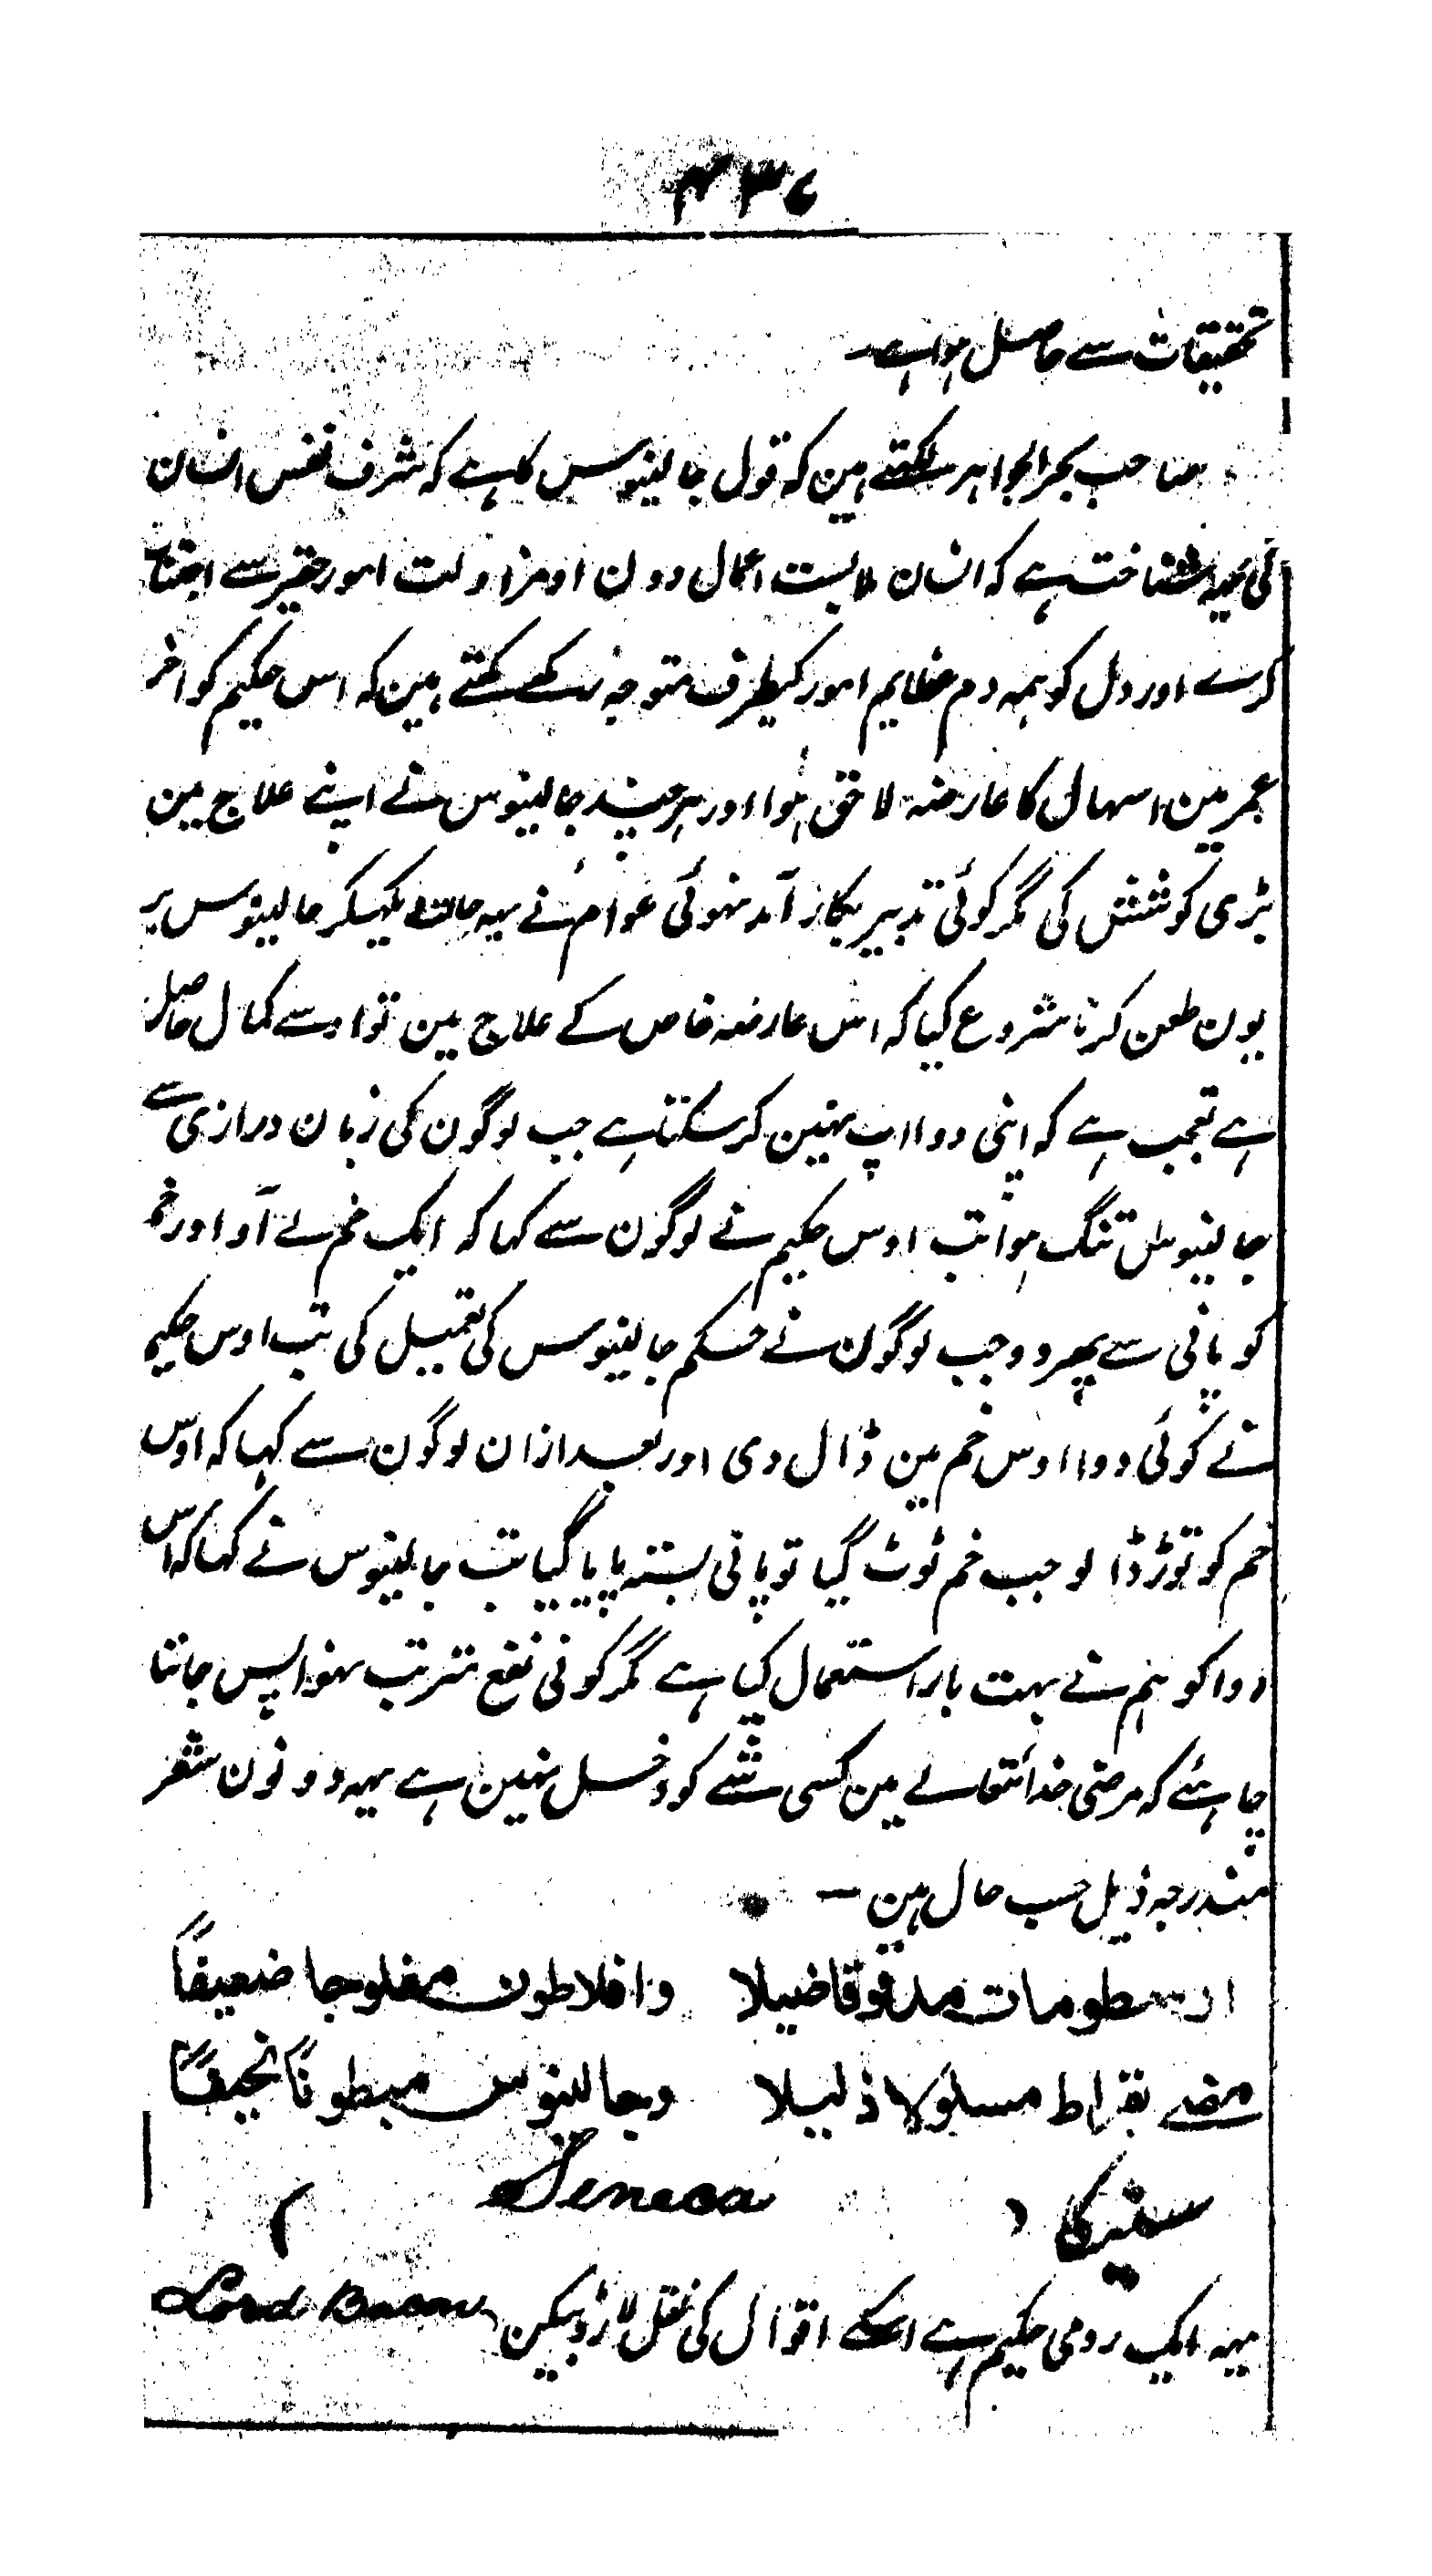 ۴۳۷
تحقیقات سے حاصل ہوا ہے
صاحب بحر الجواہر لکھتے ہین کہ قول جالینوس کا ہے کہ شرف نفس انسان
کی یہہ شناخت ہے کہ انسان ملابست اعمال دون اور مزاولت امور حقیر سے اجتناب
کرے اور دل کو ہمہ دم عظایم امور کیطرف متوجہ رکھے کہتے ہین کہ اس حکیم کو اخر
عمر مین اسہال کا عارضہ لاحق ہوا اور ہر چند جالینوس نے اپنے علاج مین
بڑی کوشش کی مگر کوئی تدبیر بکار آمد نہوئی عوام نے یہہ حالت دیکہکر جالینوس پر
یون طعن کرنا شروع کیا کہ اس عارضہ خاص کے علاج مین تو اوسے کمال حاصل
ہے تعجب ہے کہ اپنی دوا اپ نہین کر سکتا ہے جب لوگون کی زبان درازی سے
جالینوس تنگ ہوا تب اوس حکیم نے لوگون سے کہا کہ ایک خم لے آو اور خم
کو پانی سے بھر دو جب لوگون نے حکم جالینوس کی تعمیل کی تب اوس حکیم
نے کوئی دوا اوس خم مین ڈال دی اور بعد ازان لوگون سے کہا کہ اوس
خم کو توڑ ڈالو جب خم ٹوٹ گیا تو پانی بستہ پایا گیا تب جالینوس نے کہا کہ اس
دوا کو ہم نے بہت بار استعمال کی ہے مگر کوئی نفع مترتب نہوا پس جاننا
چاہئے کہ مرضی خدائتعالے مین کسی شے کو دخل نہین ہے یہہ دونون شعر
مندرجہ ذیل حسب حال ہین –
ارسطومات مدقوقا ضیلا وافلاطون مفلوجا ضعیفاً
مضے بقراط مسلولا ذلیلا وجالینوس مبطوناً نحیفاً
سنیکا ( Seneca )
یہہ ایک رومی حکیم ہے اسکے اقوال کی نقل لارڈ بیکن Lord Bacon